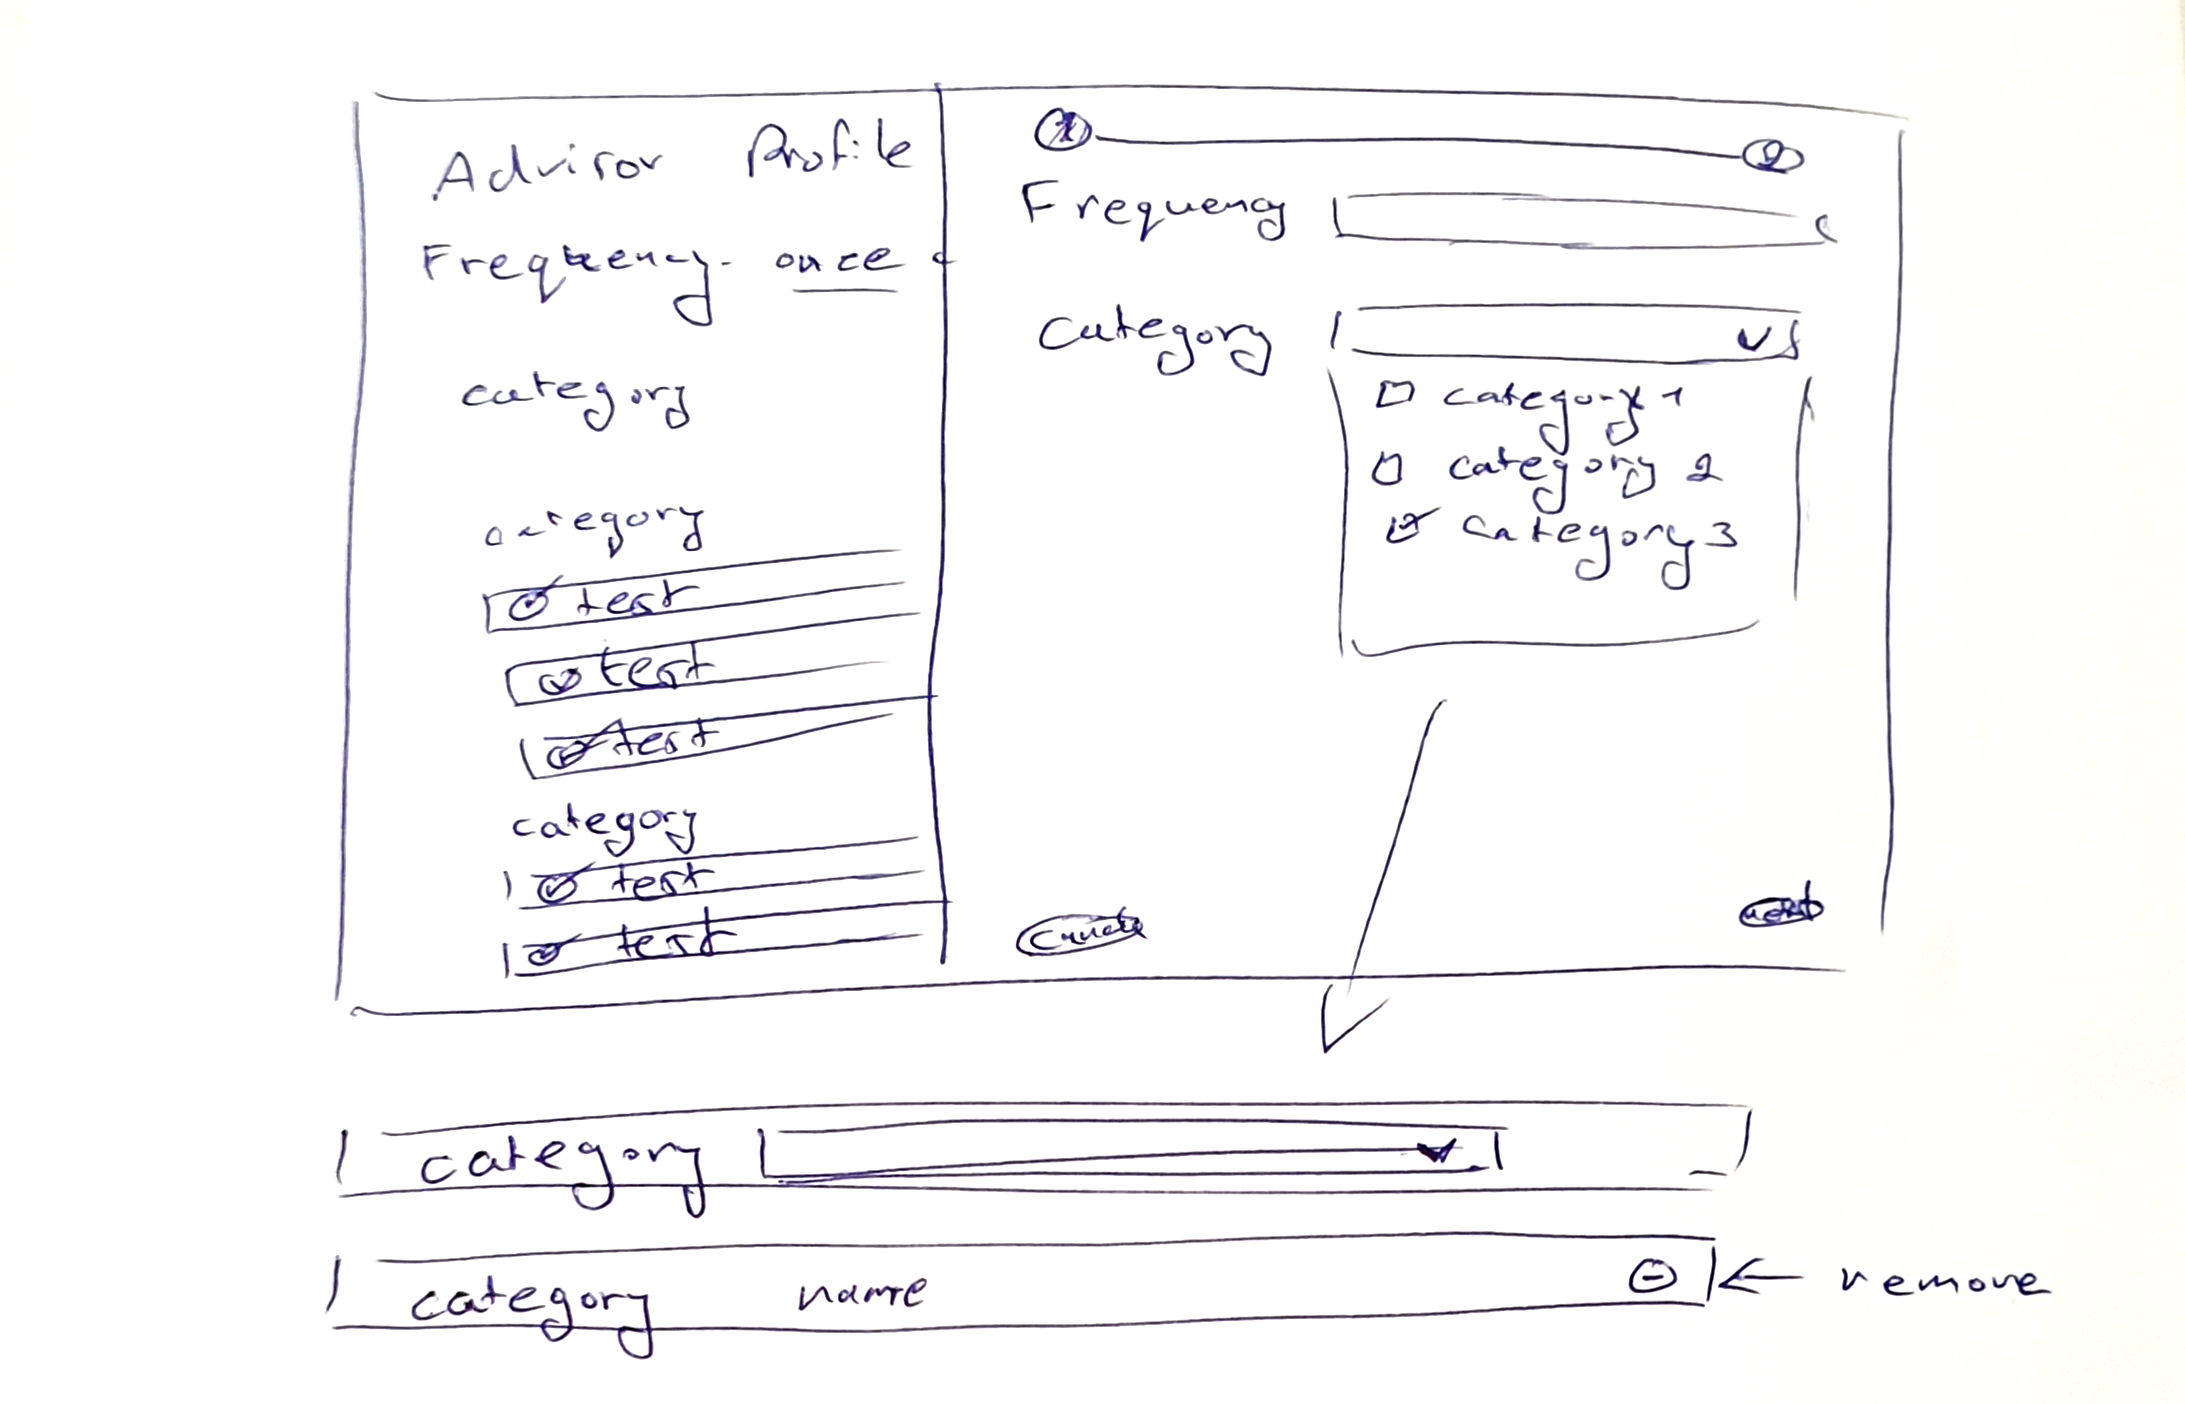 Advisor Profile
Frequency - once
category
category
test
test
test
category
test
test
1
2
Frequency
Category
category 1
category 2
category 3
next
category
category name
remove